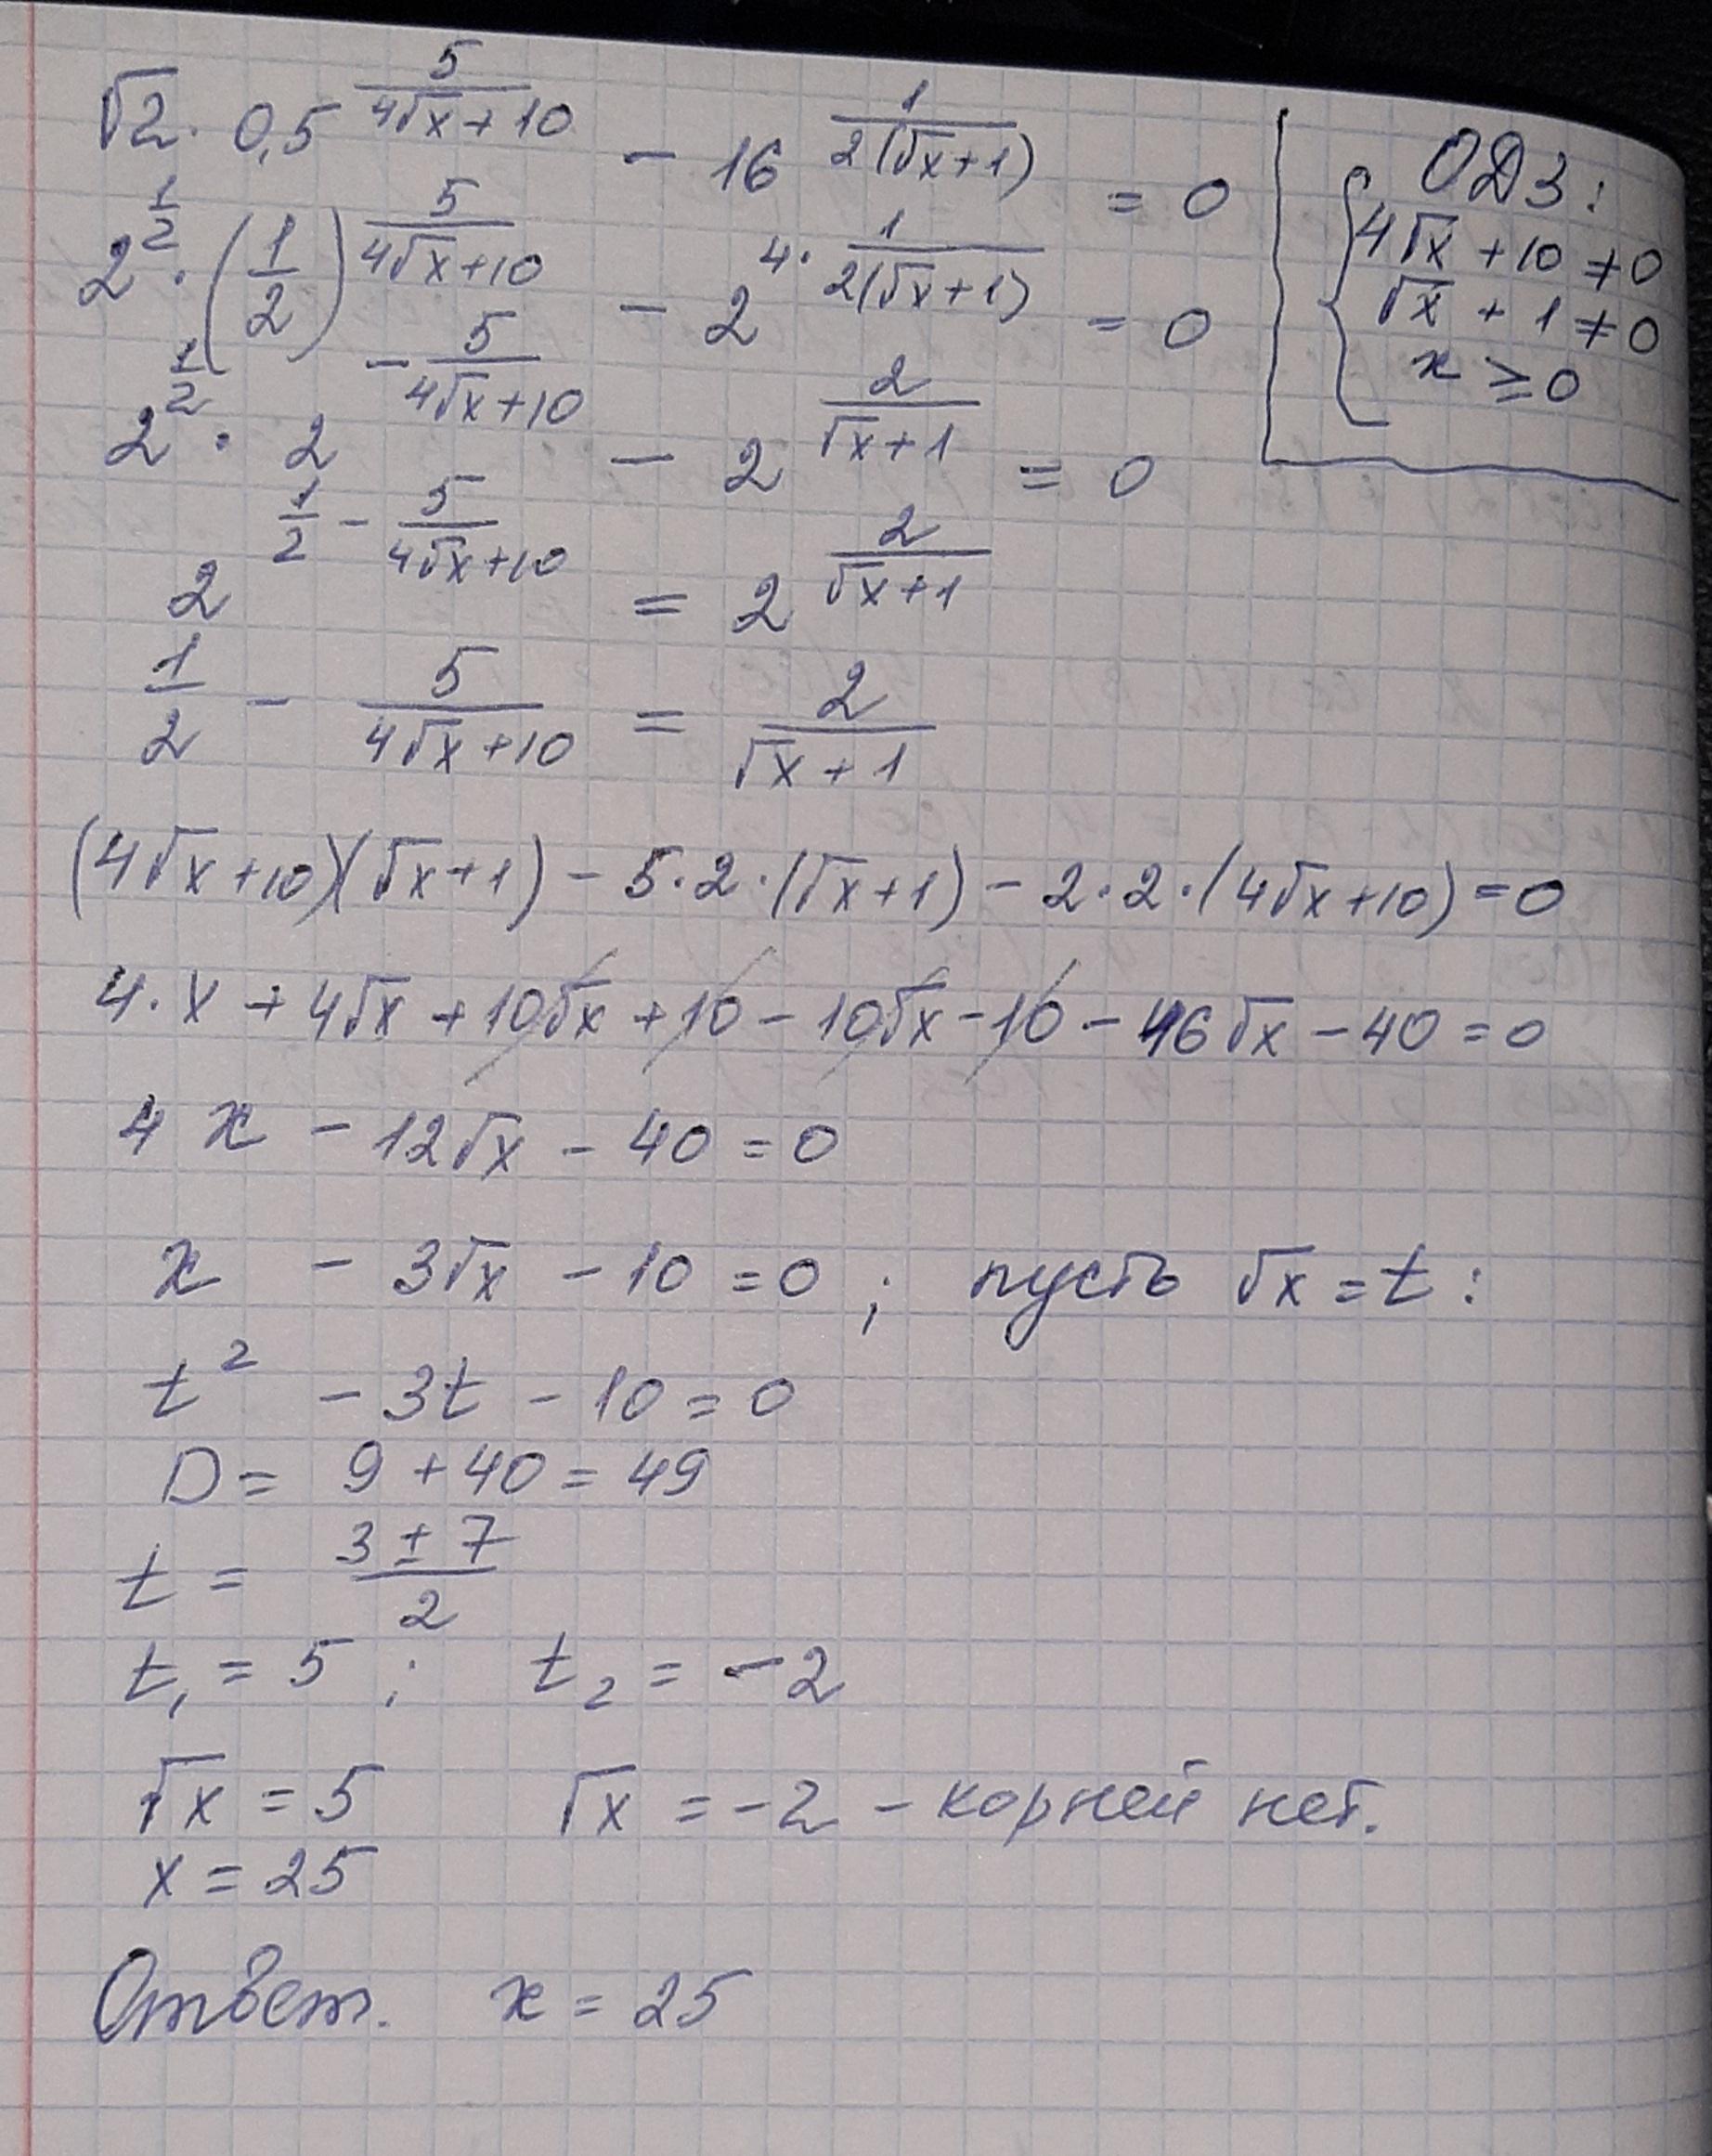 √2 · 0,5^(5/(4√x+10)) − 16^(1/(2(√x+1))) = 0
ОДЗ:
4√x + 10 ≠ 0
√x + 1 ≠ 0
x ≥ 0
2^(1/2) · (1/2)^(5/(4√x+10)) − 2^(4·1/(2(√x+1))) = 0
2^(1/2) · 2^(−5/(4√x+10)) − 2^(2/(√x+1)) = 0
2^(1/2 − 5/(4√x+10)) = 2^(2/(√x+1))
1/2 − 5/(4√x+10) = 2/(√x+1)
(4√x+10)(√x+1) − 5·2·(√x+1) − 2·2·(4√x+10) = 0
4·x + 4√x + 10√x + 10 − 10√x − 10 − 16√x − 40 = 0
4x − 12√x − 40 = 0
x − 3√x − 10 = 0 ; пусть √x = t :
t² − 3t − 10 = 0
D = 9 + 40 = 49
t = (3 ± 7)/2
t₁ = 5 ; t₂ = −2
√x = 5 √x = −2 − корней нет.
x = 25
Ответ. x = 25